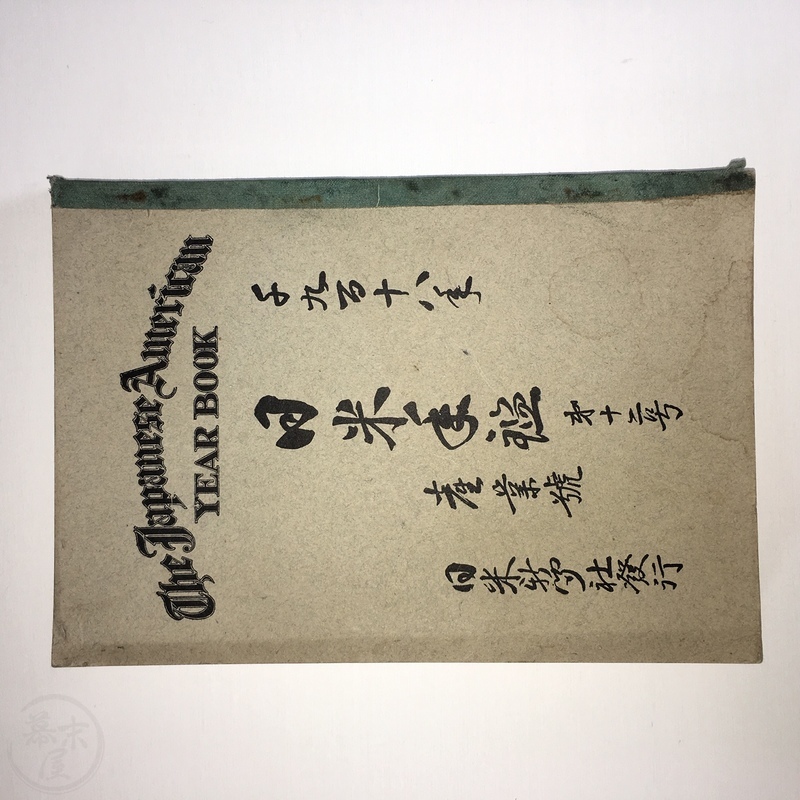 The Japanese American
YEAR BOOK
千九百十八年
日米年鑑 第十二号
産業號
日米新聞社發行
幕末屋